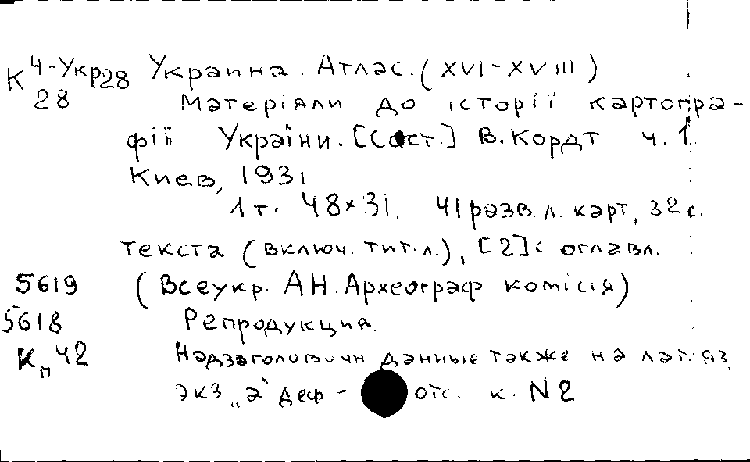 К 4-Укр28 Украина. Атлас. (XVI-XVIII)
28 Матеріяли до історії картогра-
фії України. [Сост.] В. Кордт ч. 1.
Киев, 1931
1 т. 48×31. 41 разв. л. карт, 32 с.
текста (включ. тит. л.), [2] с оглавл.
5619 (Всеукр. АН. Археограф комісія)
5618 Репродукция.
Кп 42 Надзаголовочн данные также на лат. яз.
Экз „а" деф - отс. к. N 2